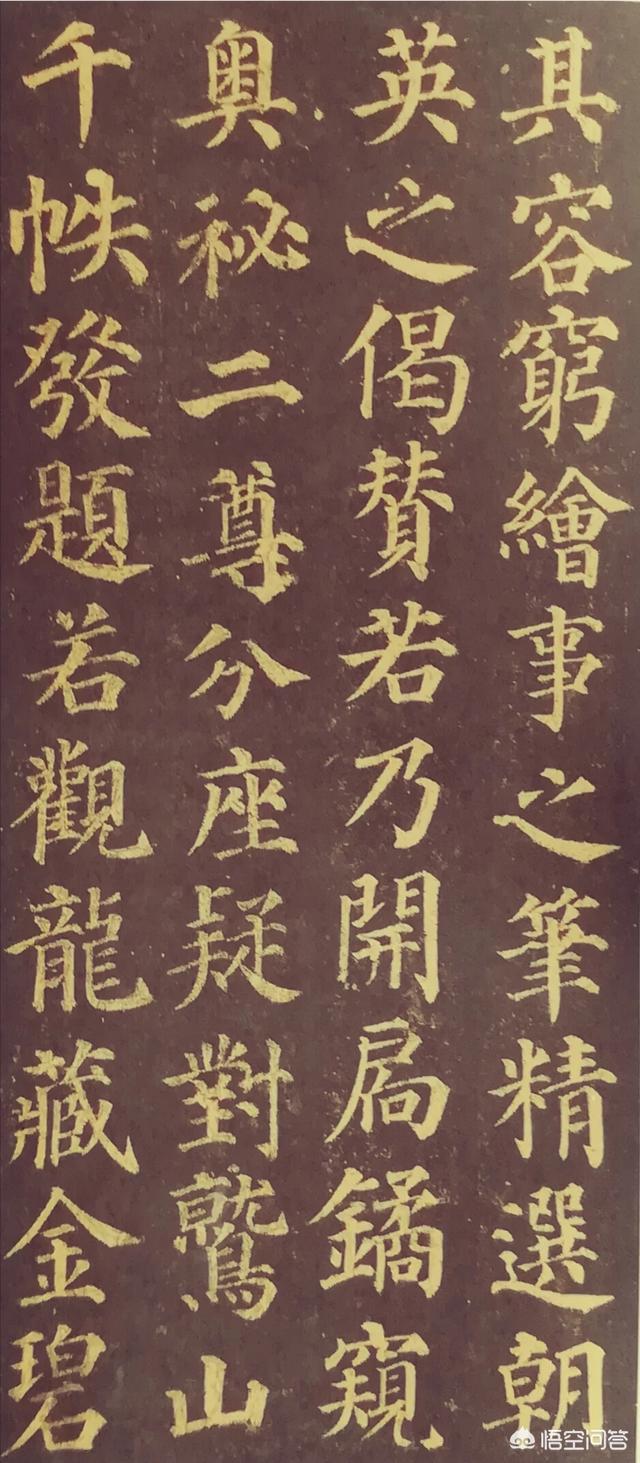 其容窮繪事之筆精選朝
英之偈贊若乃開扃鐍窺
奧秘二尊分座疑對鷲山
千帙發題若觀龍藏金碧
悟空问答